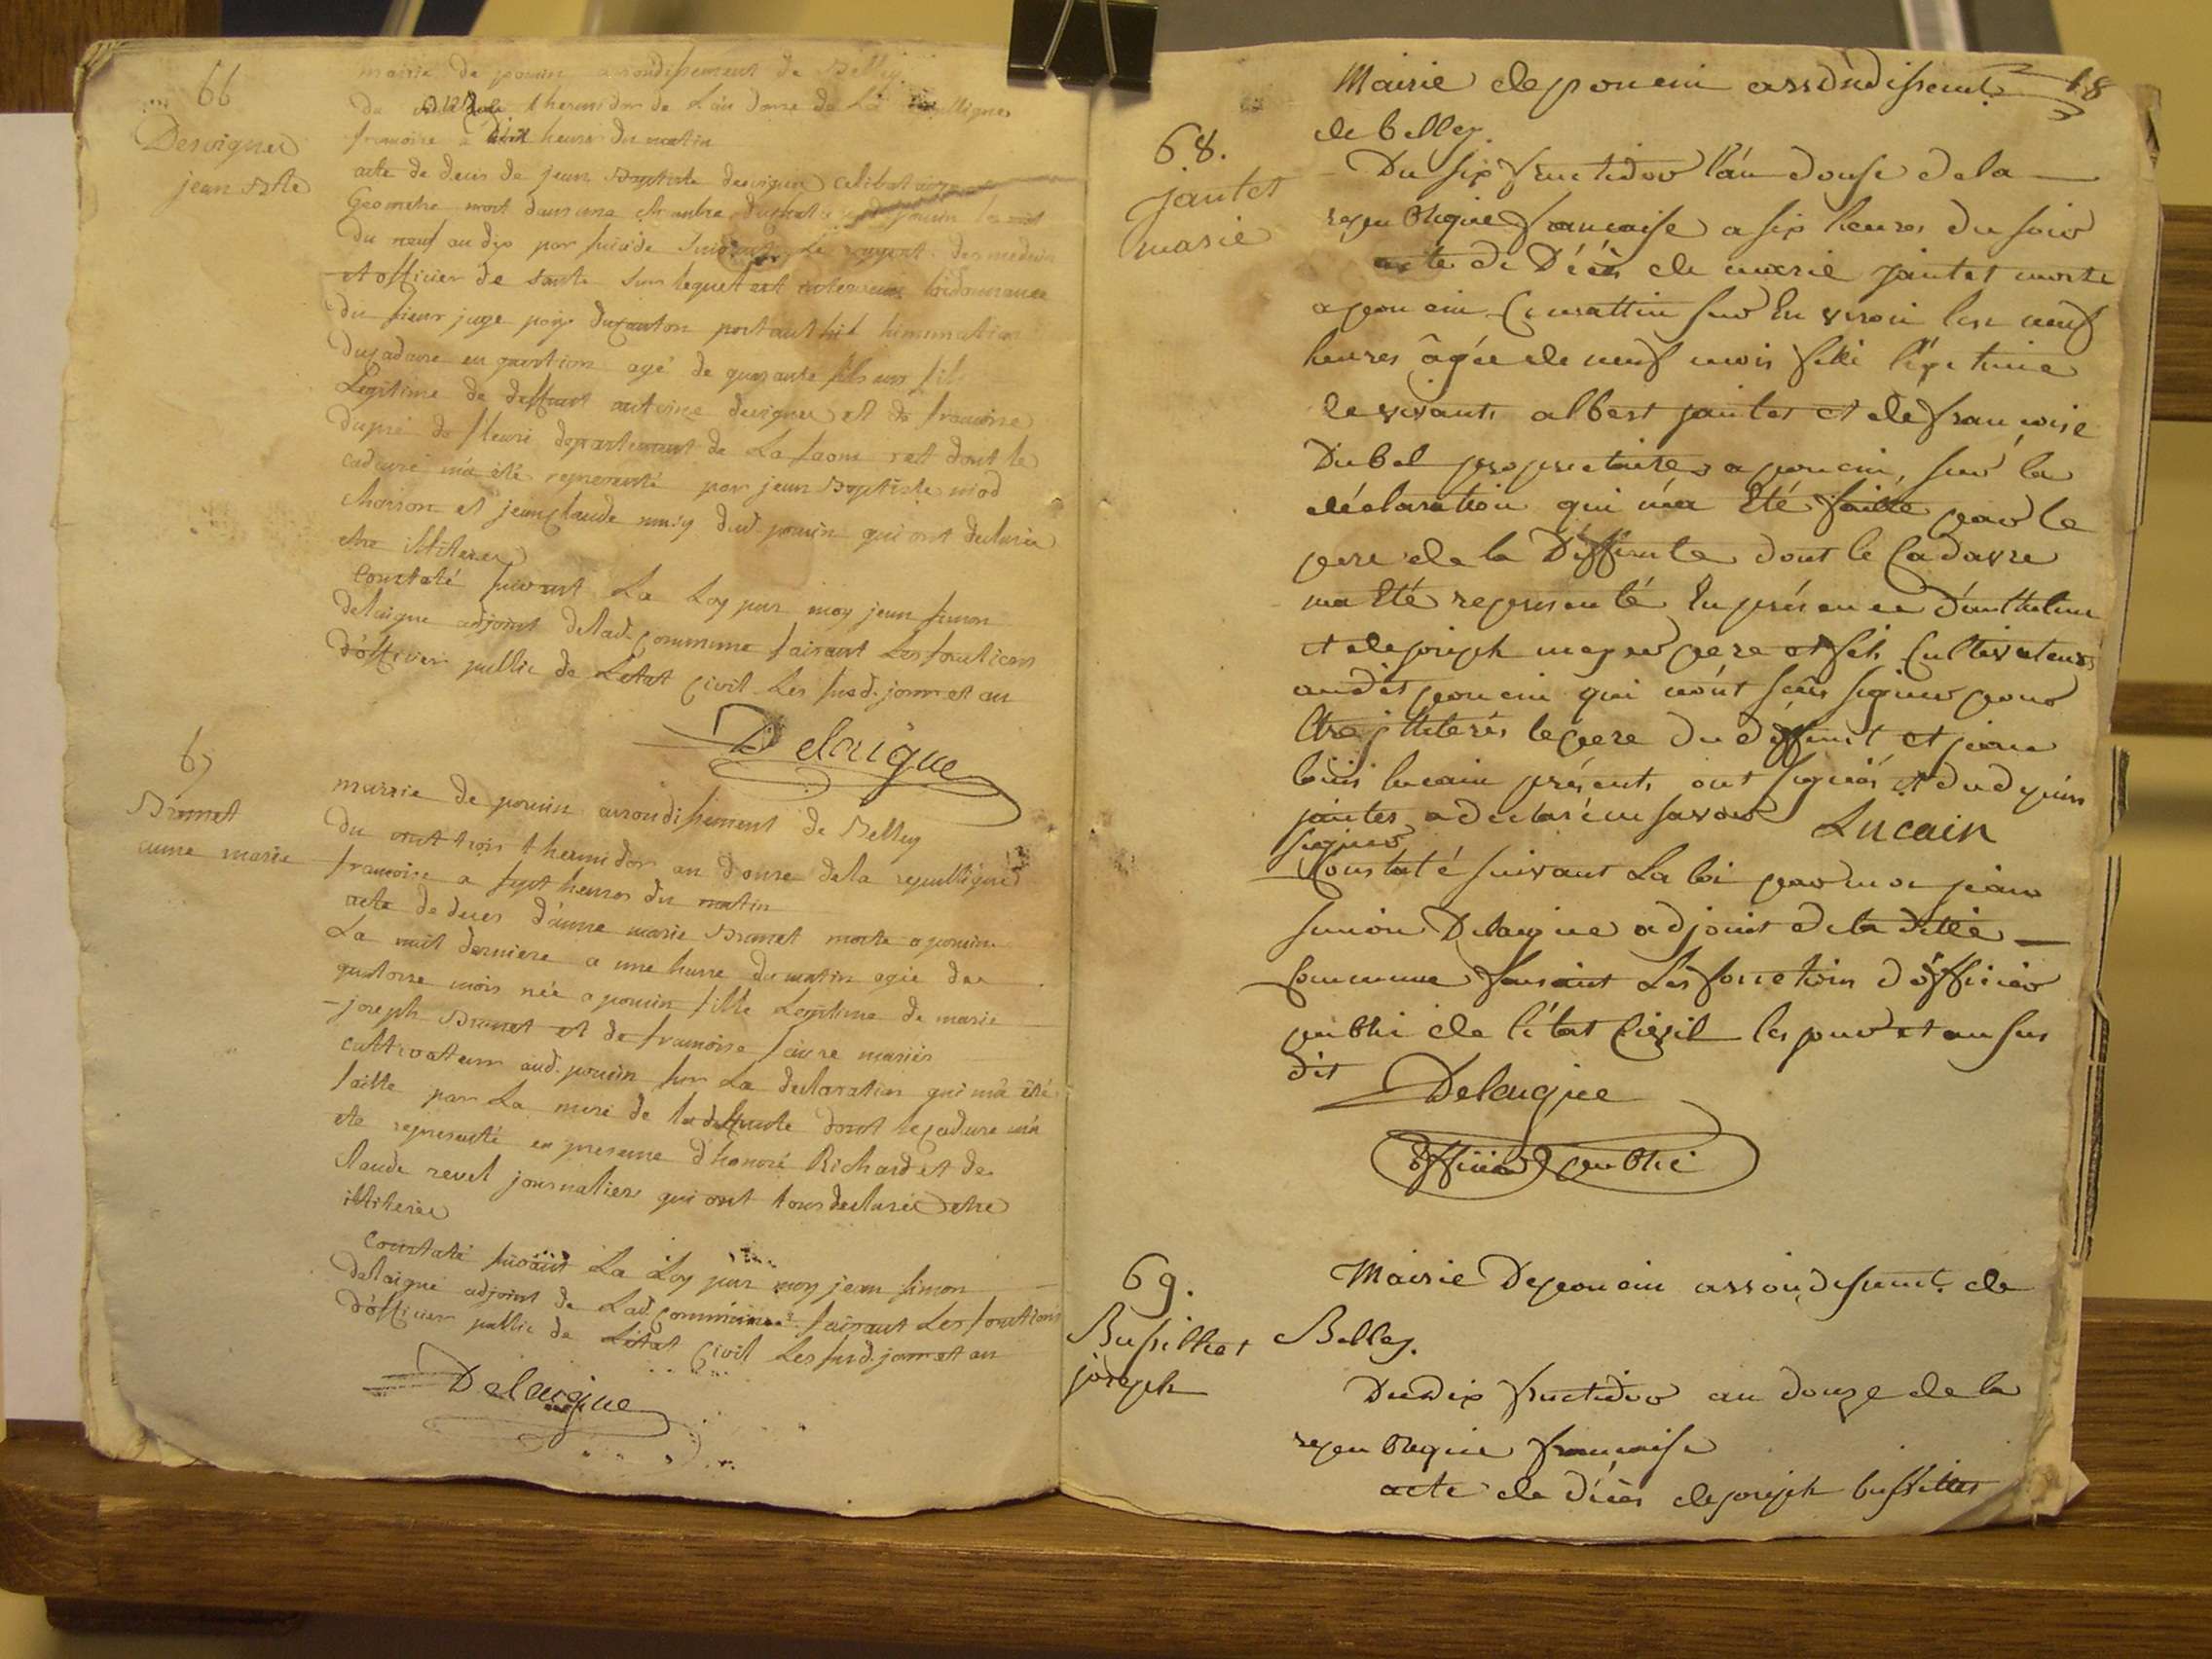 66
Desvignes
jean Bte
mairie de poncin arondissement de Belley
du thermidor de L'an douze de La republique
francoise a heures du matin
acte de deces de jean Baptiste desvignes celibataire
Geometre mort dans une chambre poncin la nuit
du neuf au dix par suicide suivant Le raport des medecin
et officier de sante sur lequel est intervenus lordonnance
du sieur juge paix du canton portant linhumation
du cadavre en question agé de quarante six ans fils
Legitime de deffunt antoine desvignes et de francoise
dupré de fleuri departement de La saone et dont le
cadavre m'a été representé par jean Baptiste
et jean claude dud. poncin qui ont declarés
etre illiterés
Constaté suivant La Loy par moy jean simon
delaigue adjoint de lad. commune faisant Les fonctions
d'officier public de Letat Civil Les susd. jour et an
Delaigue
67
Brunet
anne marie
mairie de poncin arondissement de Belley
du vint trois thermidor an douze de la republique
francoise a sept heures du matin
acte de deces d'anne marie Brunet morte a poncin
La nuit derniere a une heure du matin agée de
quatorze mois née a poncin fille Legitime de marie
joseph Brunet et de francoise faivre mariés
cultivateurs aud. poncin sur La declaration qui m'a été
faitte par La mere de la deffunte dont le cadavre m'a
eté representé en presence d'honoré Richard et de
claude revel journaliers qui ont tous declarés etre
illiterés
Constaté suivant La Loy par moy jean simon
delaigue adjoint de Lad. commune faisant Les fonctions
d'officier public de Létat Civil Les susd. jour et an
Delaigue
18
Mairie de poncin arrondissemt.
de belley.
68.
jantet
marie
Du six fructidor l'an douse de la
republique francaise a six heures du soir
acte de Décès de marie jantet morte
a poncin Ce mattin sur Environ les neuf
heures âgée de neuf mois fille légitime
de vivants albert jantet et de francoise
Dubel propriétaires a poncin, sur la
déclaration qui m'a Eté faitte par le
pere de la Deffunte dont le Cadavre
ma Eté représenté En présence d'anthelme
et de joseph pere et fils Cultivateurs
audit poncin qui n'ont sçus signer pour
Etre illiterés le pere du déffunt et jean
louis lucain présents ont signés et dud
jantet a declaré ne savoir Lucain
signer
Constaté suivant La loi par moi jean
simon Delaigue adjoint de la ditte
commune faisant Les fonction d'officier
public de l'état Civil les jour et an sus
dit
Delaigue
officier public
69.
Bussillet
joseph
Mairie De poncin arrondissemt. de
Belley.
Du dix fructidor an douze de la
republique francaise
acte de décès de joseph bussillet